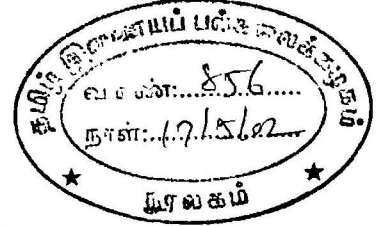 தமிழ் இணையப் பல்கலைக்கழகம்
வ எண்:...856.....
நாள்:..17/5/02...
நூலகம்